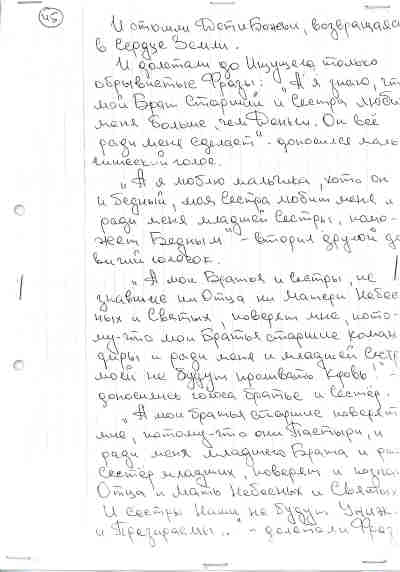 45
И стояли Дети Божьи, возвращаяс
в Сердце Земли.
И долетали до Ищущего только
обрывистые Фразы: "А я знаю, чт
мой Брат Старший и Сестра люби
меня больше, чем Деньги. Он всё
ради меня сделает" - доносился маль
чишеский голос.
"А я люблю мальчика, хоть он
и бедный, моя сестра любит меня и
ради меня младшей Сестры, помо-
жет Бедным" - вторил другой де
вичий голосок.
"А мои Братья и сестры, не
знавшие ни Отца ни Матери Небес
ных и Святых, поверят мне, пото-
му-что мои Братья старшие коман
диры и ради меня и младшей Сестр
моей не будут проливать Кровь!" -
доносились голоса братьев и сестёр.
"А мои братья старшие поверят
мне, потому-что они Пастыри, и
ради меня младшего Брата и ра
Сестёр младших, поверят и позна
Отца и Мать Небесных и Святых
И сестры Наши не будут Униж
и Презираемы..." - долетали Фраз